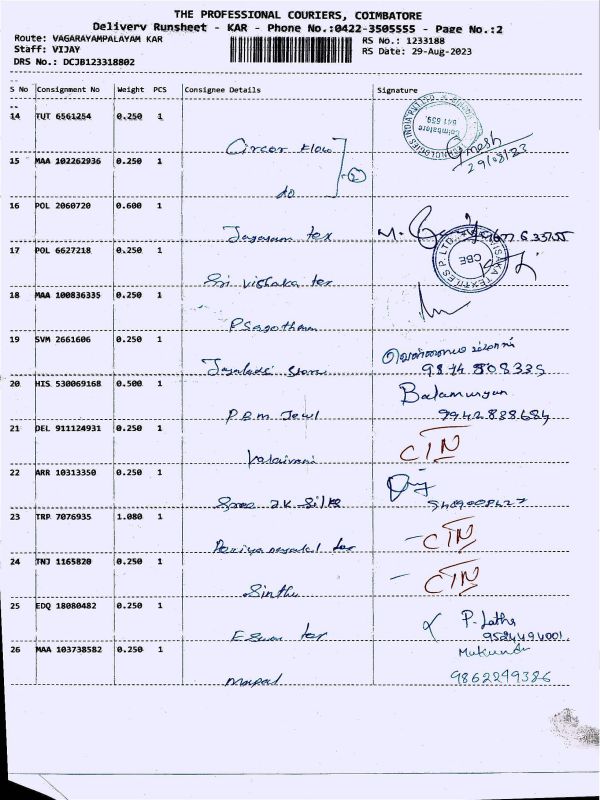 THE PROFESSIONAL COURIERS, COIMBATORE
Delivery Runsheet - KAR - Phone No.:0422-3505555 - Page No.:2
Route: VAGARAYAMPALAYAM KAR RS No.: 1233188
Staff: VIJAY RS Date: 29-Aug-2023
DRS No.: DCJB123318802
S No Consignment No Weight PCS Consignee Details Signature
14 TUT 6561254 0.250 1
Circor Flow
Ginesh
29/08/23
15 MAA 102262936 0.250 1
do
2
16 POL 2060720 0.600 1
Jayaram tex
17 POL 6627218 0.250 1
CBE
Sri Vishaka tex
18 MAA 100836335 0.250 1
19 SVM 2661606 0.250 1
9874808335
20 HIS 530069168 0.500 1
Balamurugan
P.B.m Jewl 9942888684
21 DEL 911124931 0.250 1
CTN
Kalaivani
22 ARR 10313350 0.250 1
Sree J.K Silks
23 TRP 7076935 1.080 1
CTN
24 TNJ 1165820 0.250 1
CTN
Sinthu
25 EDQ 18080482 0.250 1
P. Latha
tex 9524494001
26 MAA 103738582 0.250 1
9862249386